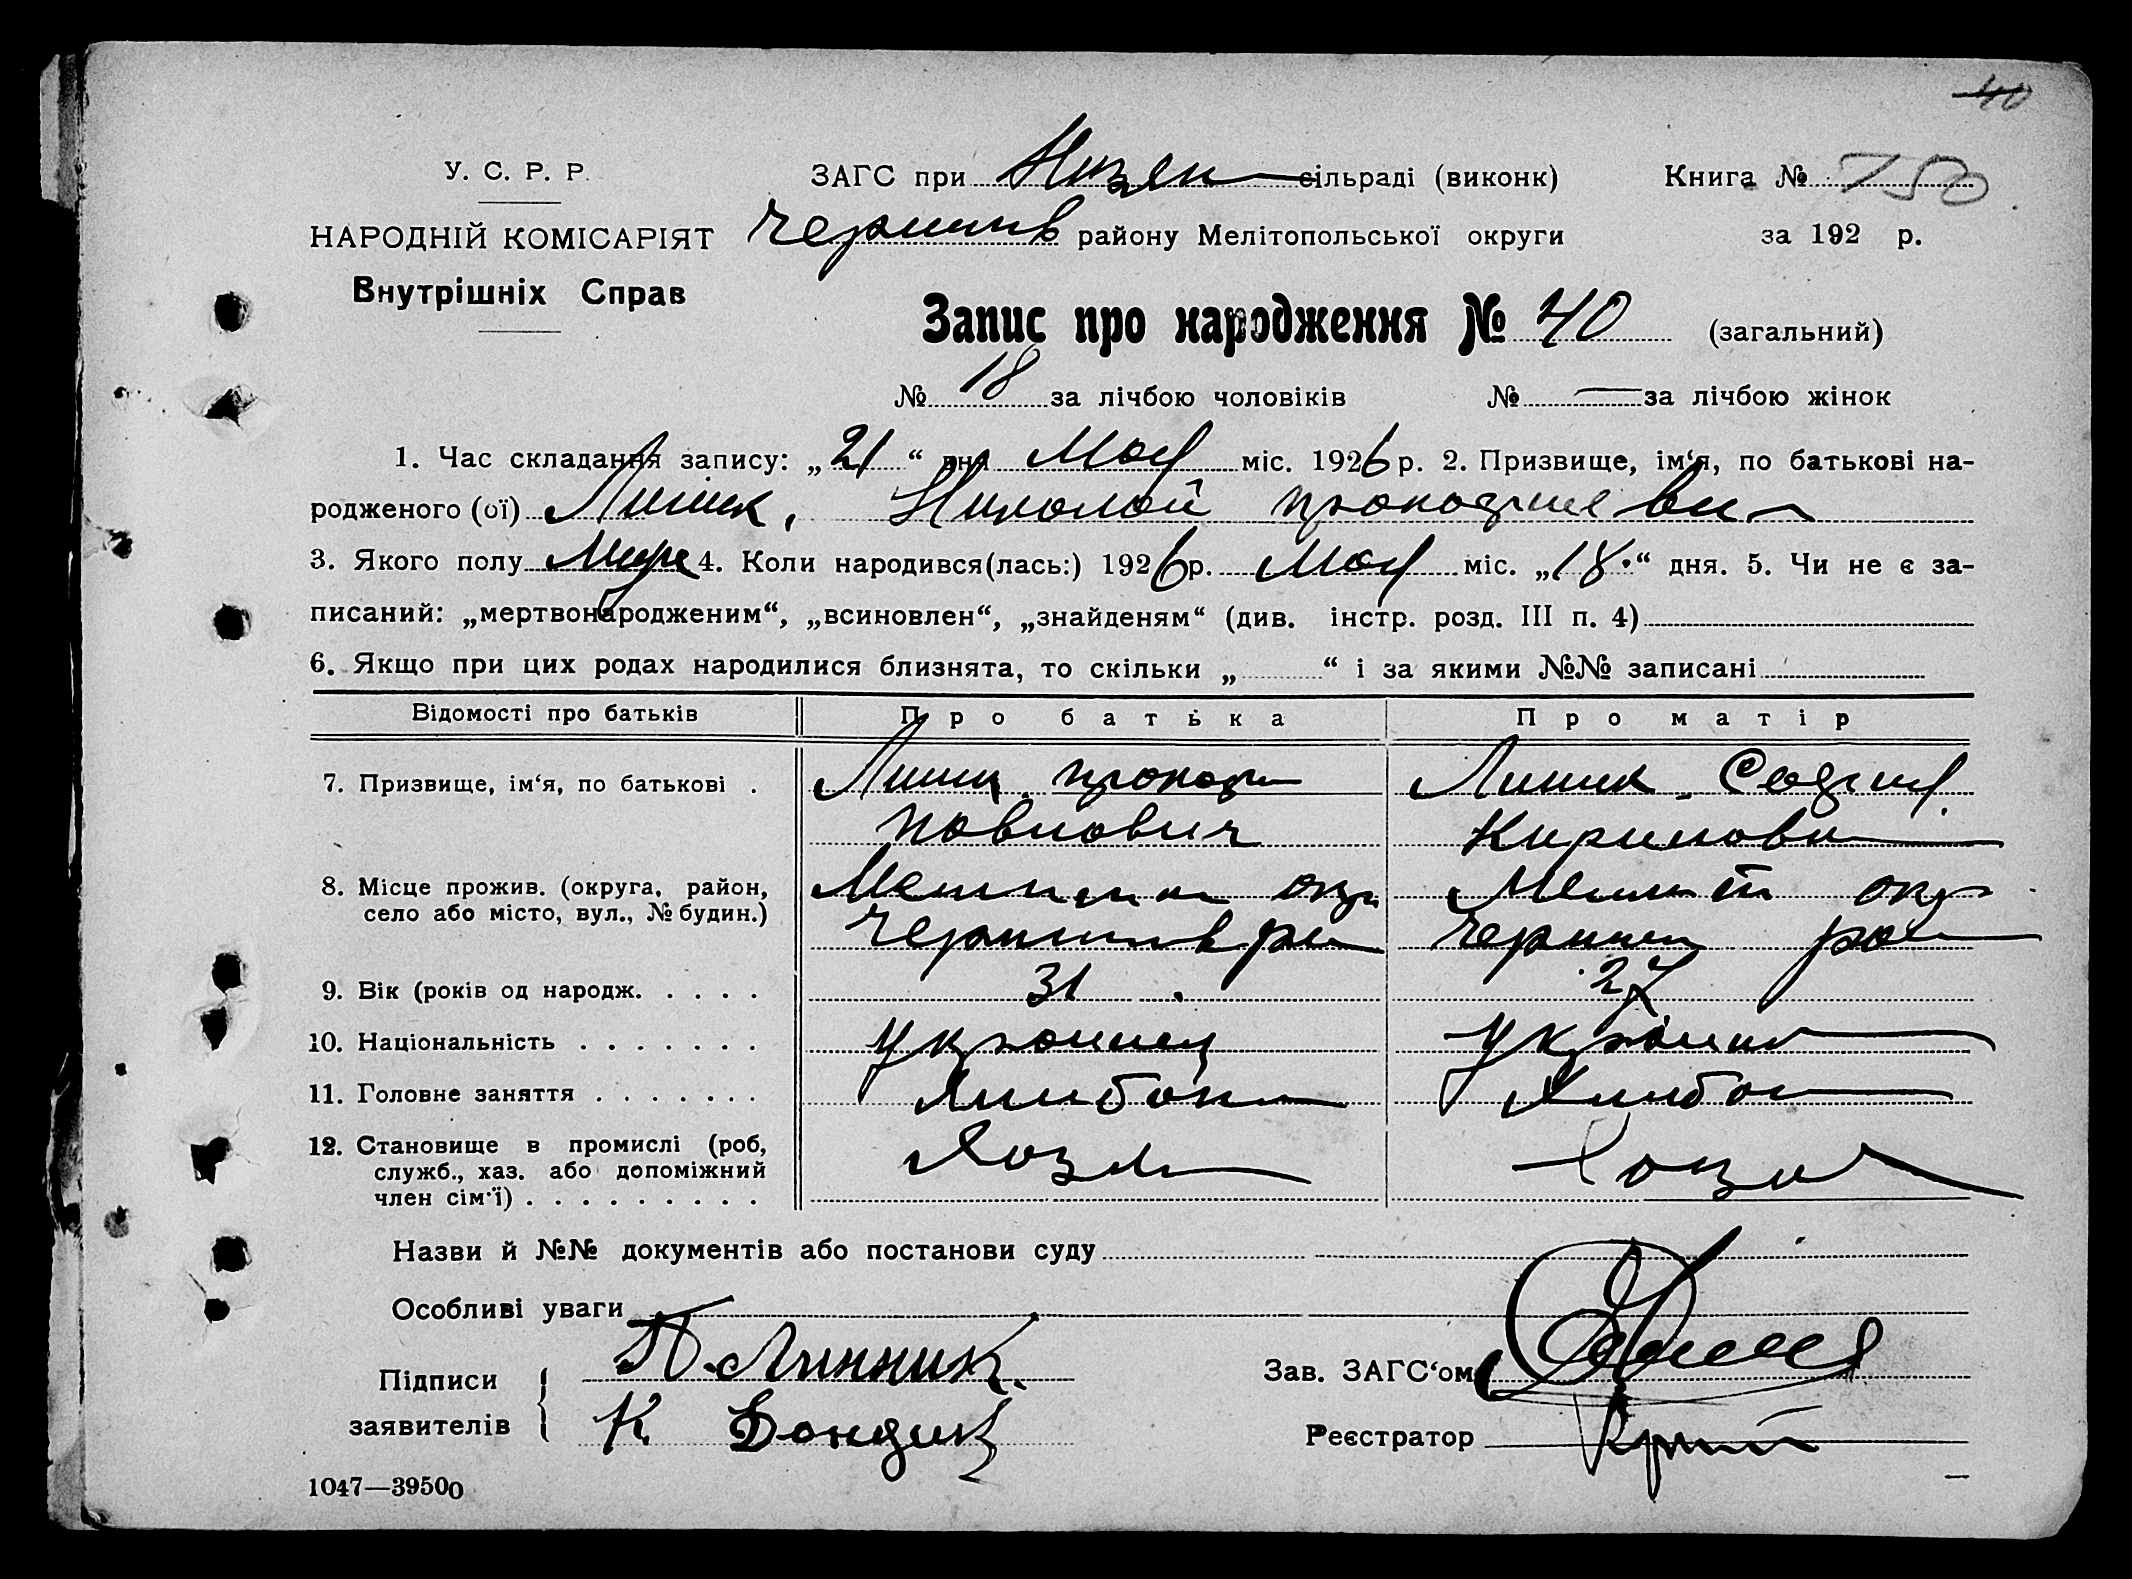 40
У. С. Р. Р. ЗАГС при Низян сільраді (виконк) Книга № 750
НАРОДНІЙ КОМІСАРІЯТ району Мелітопольської округи за 192 р.
Внутрішніх Справ
Запис про народження № 40 (загальний)
№ 18 за лічбою чоловіків № — за лічбою жінок
1. Час складання запису: „21“ дня Мая міс. 1926 р. 2. Призвище, ім‘я, по батькові на-
родженого (ої) Линик, Николай
3. Якого полу Муж 4. Коли народився(лась:) 1926 р. Мая міс. „18.“ дня. 5. Чи не є за-
писаний: „мертвонародженим“, „всиновлен“, „знайденям“ (див. інстр. розд. III п. 4)
6. Якщо при цих родах народилися близнята, то скільки „ “ і за якими №№ записані
Відомості про батьків Про батька Про матір
7. Призвище, ім‘я, по батькові . Линик Линик
Павлович Кирилови
8. Місце прожив. (округа, район,
село або місто, вул., № будин.)
9. Вік (років од народж. . . . . 31 27
10. Національність . . . . . . . Украинец Украинк
11. Головне заняття . . . . . . . Хлибоп Хлибо
12. Становище в промислі (роб,
служб., хаз. або допоміжний
член сім‘ї) . . . . . . . . . Хозя Хозя
Назви й №№ документів або постанови суду
Особливі уваги
Підписи П. Линник. Зав. ЗАГС‘ом
заявителів К Бондик Реєстратор
1047—39500